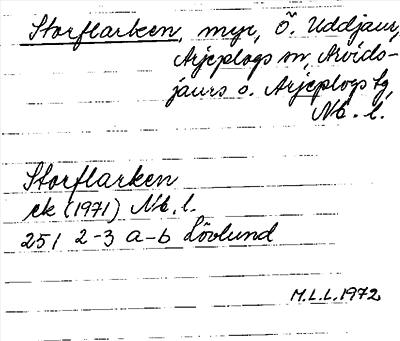 Storflarken, myr, Ö. Uddjaur,
Arjeplogs sn, Arvids-
jaurs o. Arjeplogs tg
Nb. l.
Storflarken
ek (1971) Nb. l.
251 2-3 a-b Lövlund
M.L.L. 1972